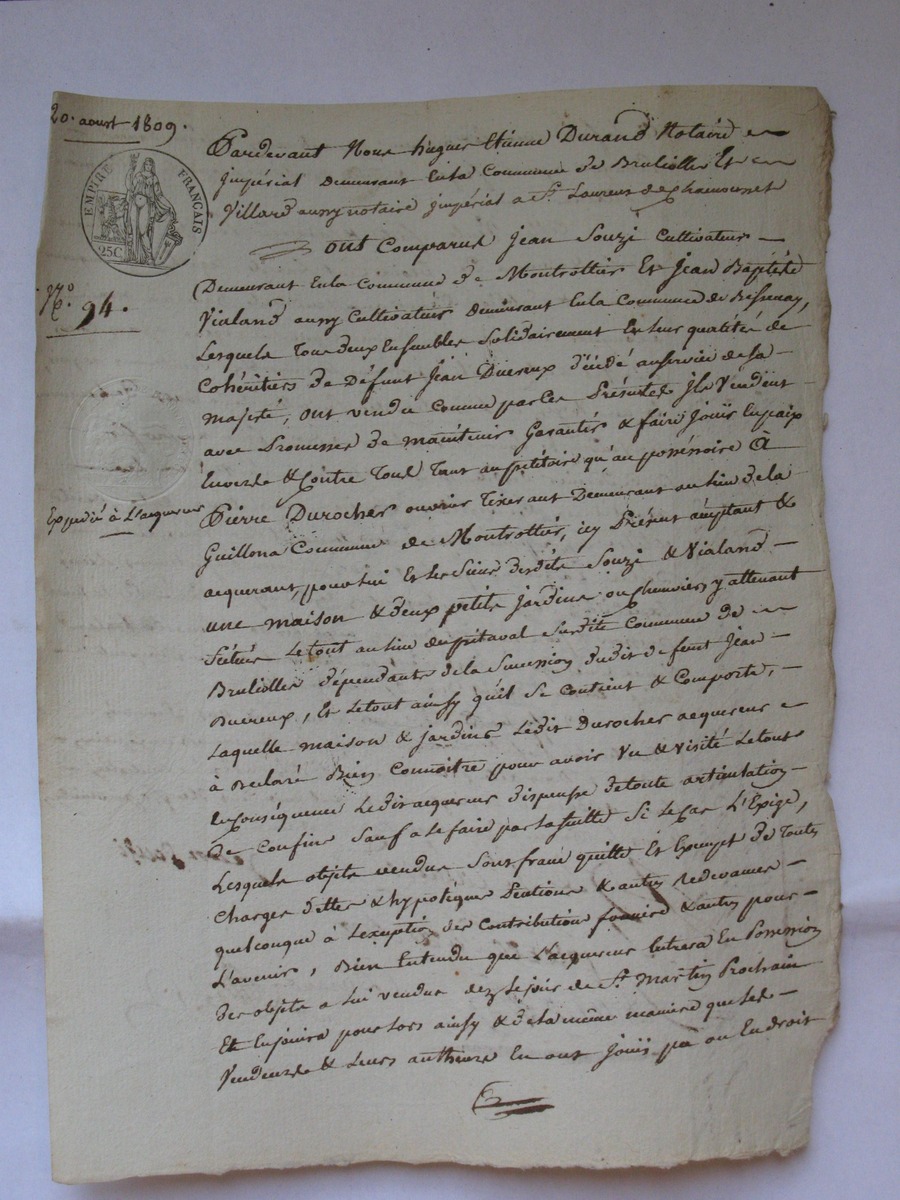 20. aoust 1809.
EMPIRE FRANÇAIS
25C
N.º 94.
Expédié à L'acquereur
Pardevant Nous hugues Etienne Durand Notaire
Impérial demeurant En la Commune de Brulliolles Et
Villard aussy notaire jmpérial a St. Laurent de Chamousset
ont Comparus Jean Souzi Cultivateur
Demeurant En la Commune de Montrottier Et Jean Baptiste
Vialand aussy Cultivateur demeurant En la Commune de Bessenay,
Lesquels Tous deux Ensembles Solidairement En leur qualités de
Cohéritiers de Défunt Jean Ducreux décédé au service de sa
majesté, ont vendu Comme par Ces Présentes Ils Vendent
avec Promesse de maintenir Garantir & faire Jouir En paix
Envers & Contre Tous Tant au pétitoire qu'au possessoire À
Pierre Durocher ouvrier Tixerant Demeurant au lieu de la
Guillona Commune de Montrottier, icy Présent acceptant &
acquerant, pour lui Et les Siens desdits Souzi & Vialand
une maison & deux petits jardins ou chenevier y attenant
Scitués Le tout au lieu du pitaval Susdite Commune de
Brulliolles dépendants de la Succession dudit defunt Jean
Ducreux, Et Le tout ainsy qu'il Se Contient & Comporte,
Laquelle maison & jardins Ledit Durocher acquereur
à Declaré Bien Connoitre pour avoir Vu & Visité Le tout
En Conséquence Ledit acquereur dispense de toute articulation
De Confins Sauf a Le faire par La suitte Si le Cas L'Exige,
Lesquels objets vendus Sont francs quitte Et Exempt de Toutes
Charges dettes & hypotèques Pentions & autres redevances
quelconque à L'exeption des Contributions foncière & autres pour
L'avenir, Bien Entendu que L'acquereur Entrera En Possession
Des objets a Lui vendus dez Le jour de St. Martin Prochain
Et En jouira pour Lors ainsy & de la même maniere que Les
Vendeurs & Leurs autheurs En ont Joui pû ou En droit